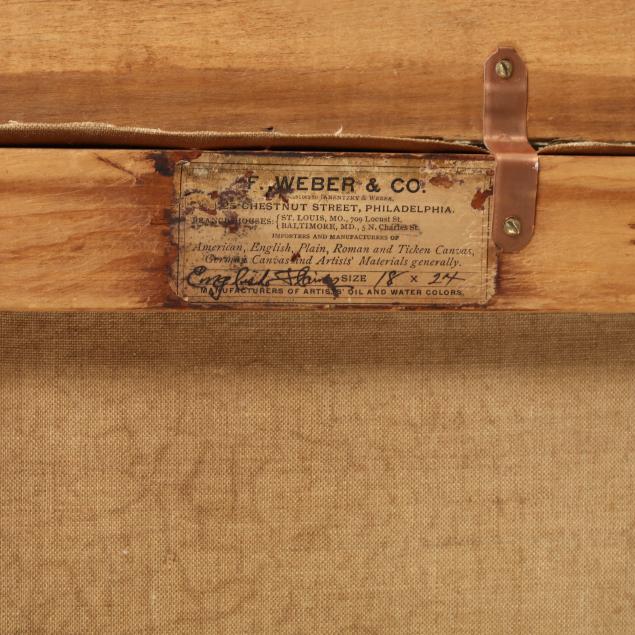 F. WEBER & CO.
JANENTZKY & WEBER,
CHESTNUT STREET, PHILADELPHIA.
BRANCH HOUSES: { ST. LOUIS, MO., 709 Locust St.
{ BALTIMORE, MD., 5 N. Charles St.
IMPORTERS AND MANUFACTURERS OF
American, English, Plain, Roman and Ticken Canvas,
German Canvas and Artists' Materials generally.
English Plain SIZE 18 x 24
MANUFACTURERS OF ARTISTS' OIL AND WATER COLORS.